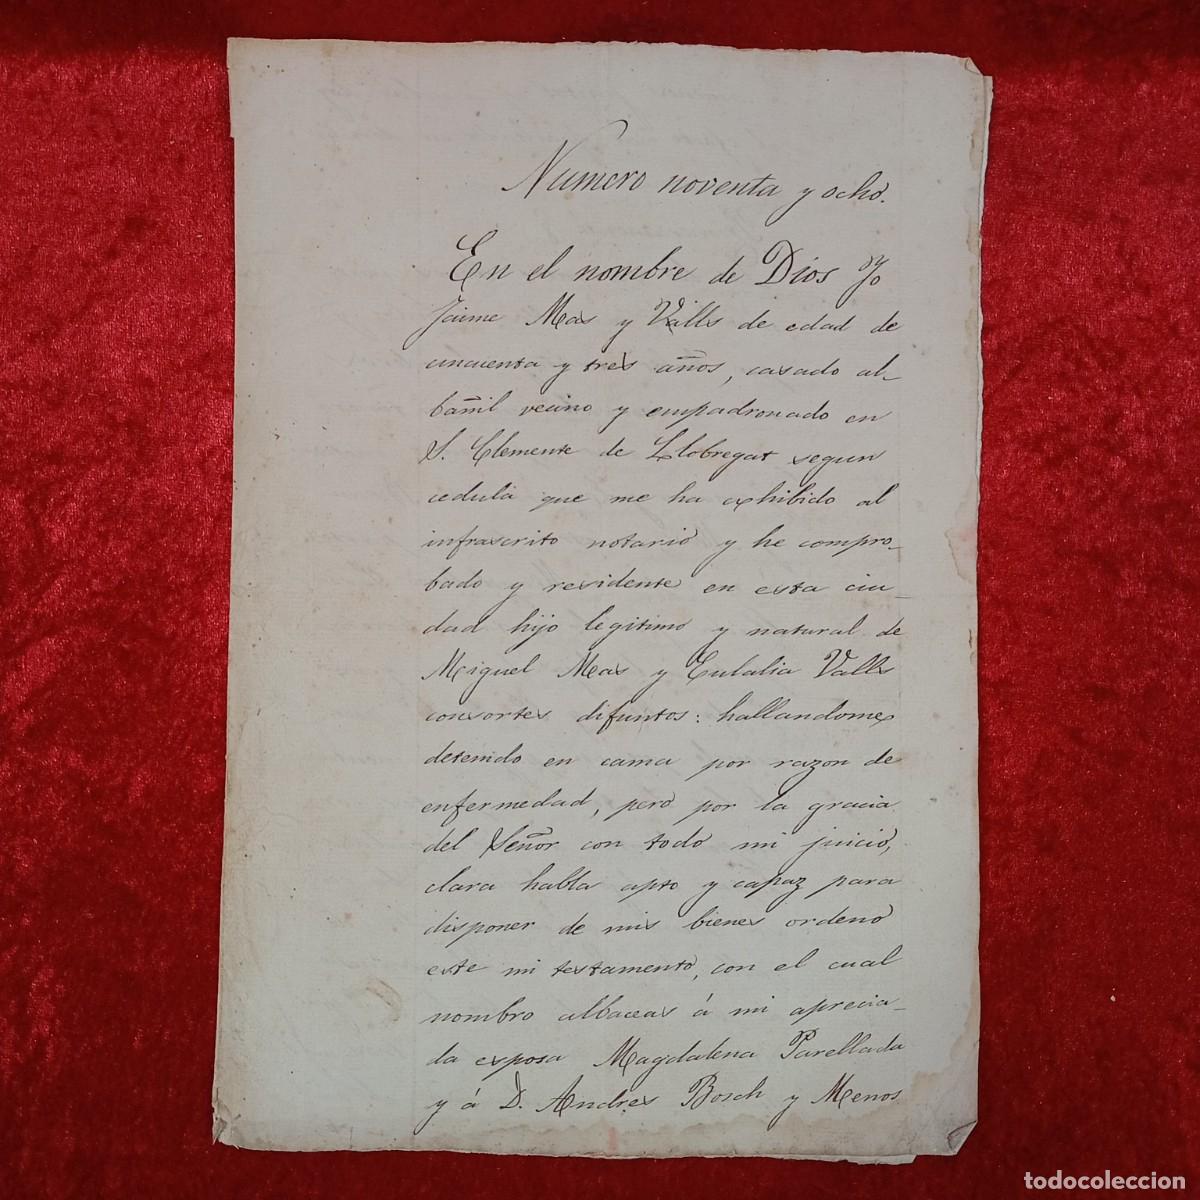 Numero noventa y ocho.
En el nombre de Dios Yo
Jaime Mas y Valls de edad de
cincuenta y tres años, casado al-
bañil vecino y empadronado en
S. Clemente de Llobregat segun
cedula que me ha exhibido al
infrascrito notario y he compro-
bado y residente en esta ciu-
dad hijo legitimo y natural de
Miguel Mas y Eulalia Valls
consortes difuntos: hallandome
detenido en cama por razon de
enfermedad, pero por la gracia
del Señor con todo mi juicio,
clara habla apto y capaz para
disponer de mis bienes ordeno
este mi testamento, con el cual
nombro albaceas á mi aprecia-
da esposa Magdalena Parellada
y á D. Andres Bosch y Menos
todocoleccion